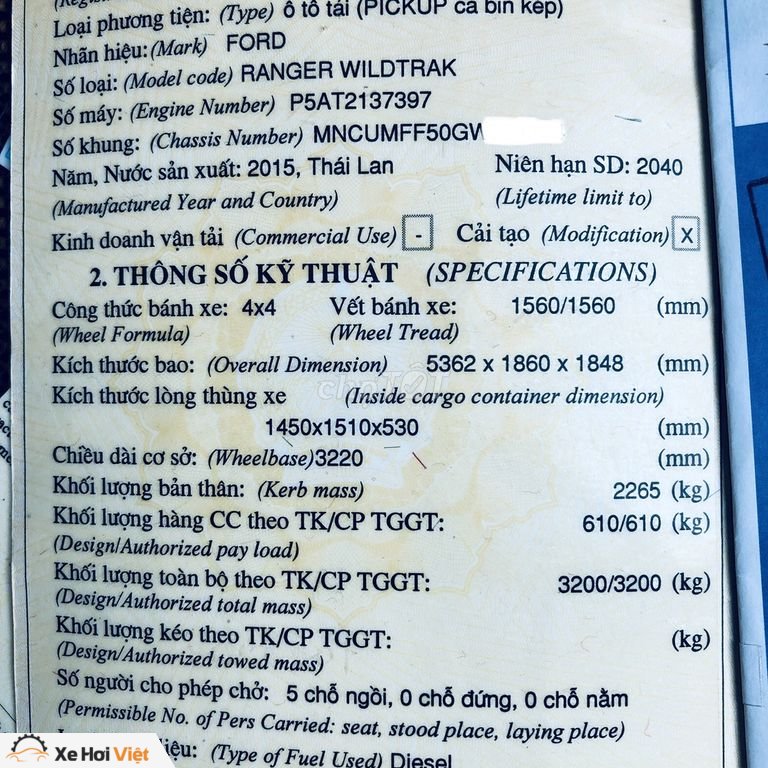 Loại phương tiện: (Type) ô tô tải (PICKUP ca bin kép)
Nhãn hiệu: (Mark) FORD
Số loại: (Model code) RANGER WILDTRAK
Số máy: (Engine Number) P5AT2137397
Số khung: (Chassis Number) MNCUMFF50GW
Năm, Nước sản xuất: 2015, Thái Lan Niên hạn SD: 2040
(Manufactured Year and Country) (Lifetime limit to)
Kinh doanh vận tải (Commercial Use) - Cải tạo (Modification) X
2. THÔNG SỐ KỸ THUẬT (SPECIFICATIONS)
Công thức bánh xe: 4x4 Vết bánh xe: 1560/1560 (mm)
(Wheel Formula) (Wheel Tread)
Kích thước bao: (Overall Dimension) 5362 x 1860 x 1848 (mm)
chợTỐT
Kích thước lòng thùng xe (Inside cargo container dimension)
1450x1510x530 (mm)
Chiều dài cơ sở: (Wheelbase)3220 (mm)
Khối lượng bản thân: (Kerb mass) 2265 (kg)
Khối lượng hàng CC theo TK/CP TGGT: 610/610 (kg)
(Design/Authorized pay load)
Khối lượng toàn bộ theo TK/CP TGGT: 3200/3200 (kg)
(Design/Authorized total mass)
Khối lượng kéo theo TK/CP TGGT: (kg)
(Design/Authorized towed mass)
Số người cho phép chở: 5 chỗ ngồi, 0 chỗ đứng, 0 chỗ nằm
(Permissible No. of Pers Carried: seat, stood place, laying place)
(Type of Fuel Used) Diesel
Xe Hơi Việt